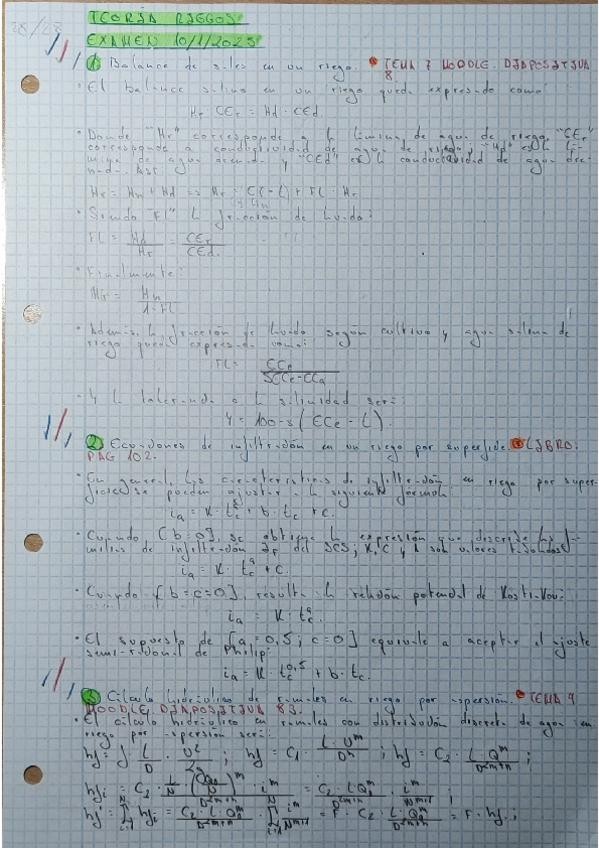 28/28
TEORÍA RIEGOS
EXAMEN 10/1/2025
1 Balance de sales en un riego. * TEMA 7 MOODLE. DIAPOSITIVA
8.
• El balance salino en un riego queda expresado como:
Hr · CEr = Hd · CEd.
• Donde "Hr" corresponde a la lámina de agua de riego, "CEr"
corresponde a conductividad de agua de riego; "Hd" es la lá-
mina de agua drenada y "CEd" es la conductividad de agua dre-
nada. Así:
• Siendo "FL" la fracción de lavado:
FL = Hd/Hr = CEr/CEd.
• Finalmente:
Hr = Hn/1-FL
• Además, la fracción de lavado según cultivo y agua salina de
riego queda expresada como:
• Y la tolerancia a la salinidad será:
2 Ecuaciones de infiltración en un riego por superficie. * LIBRO:
PÁG 102.
• En general, las características de infiltración en riego por super-
ficie se pueden ajustar a la siguiente fórmula:
ia = K · tc^a + b · tc + c.
• Cuando [b=0], se obtiene la expresión que describe las fa-
milias de infiltración del SCS; K, C y a son valores tabulados
ia = K · tc^a + c.
• Cuando [b=c=0], resulta la relación potencial de Kostiakov:
ia = K · tc^a.
• El supuesto de [a=0,5; c=0] equivale a aceptar el ajuste
semi-racional de Philip:
ia = K · tc^0,5 + b · tc.
3 Cálculo hidráulico de ramales en riego por aspersión. * TEMA 9
MOODLE. DIAPOSITIVA 83.
• El cálculo hidráulico en ramales con distribución discreta de agua en
riego por aspersión será: